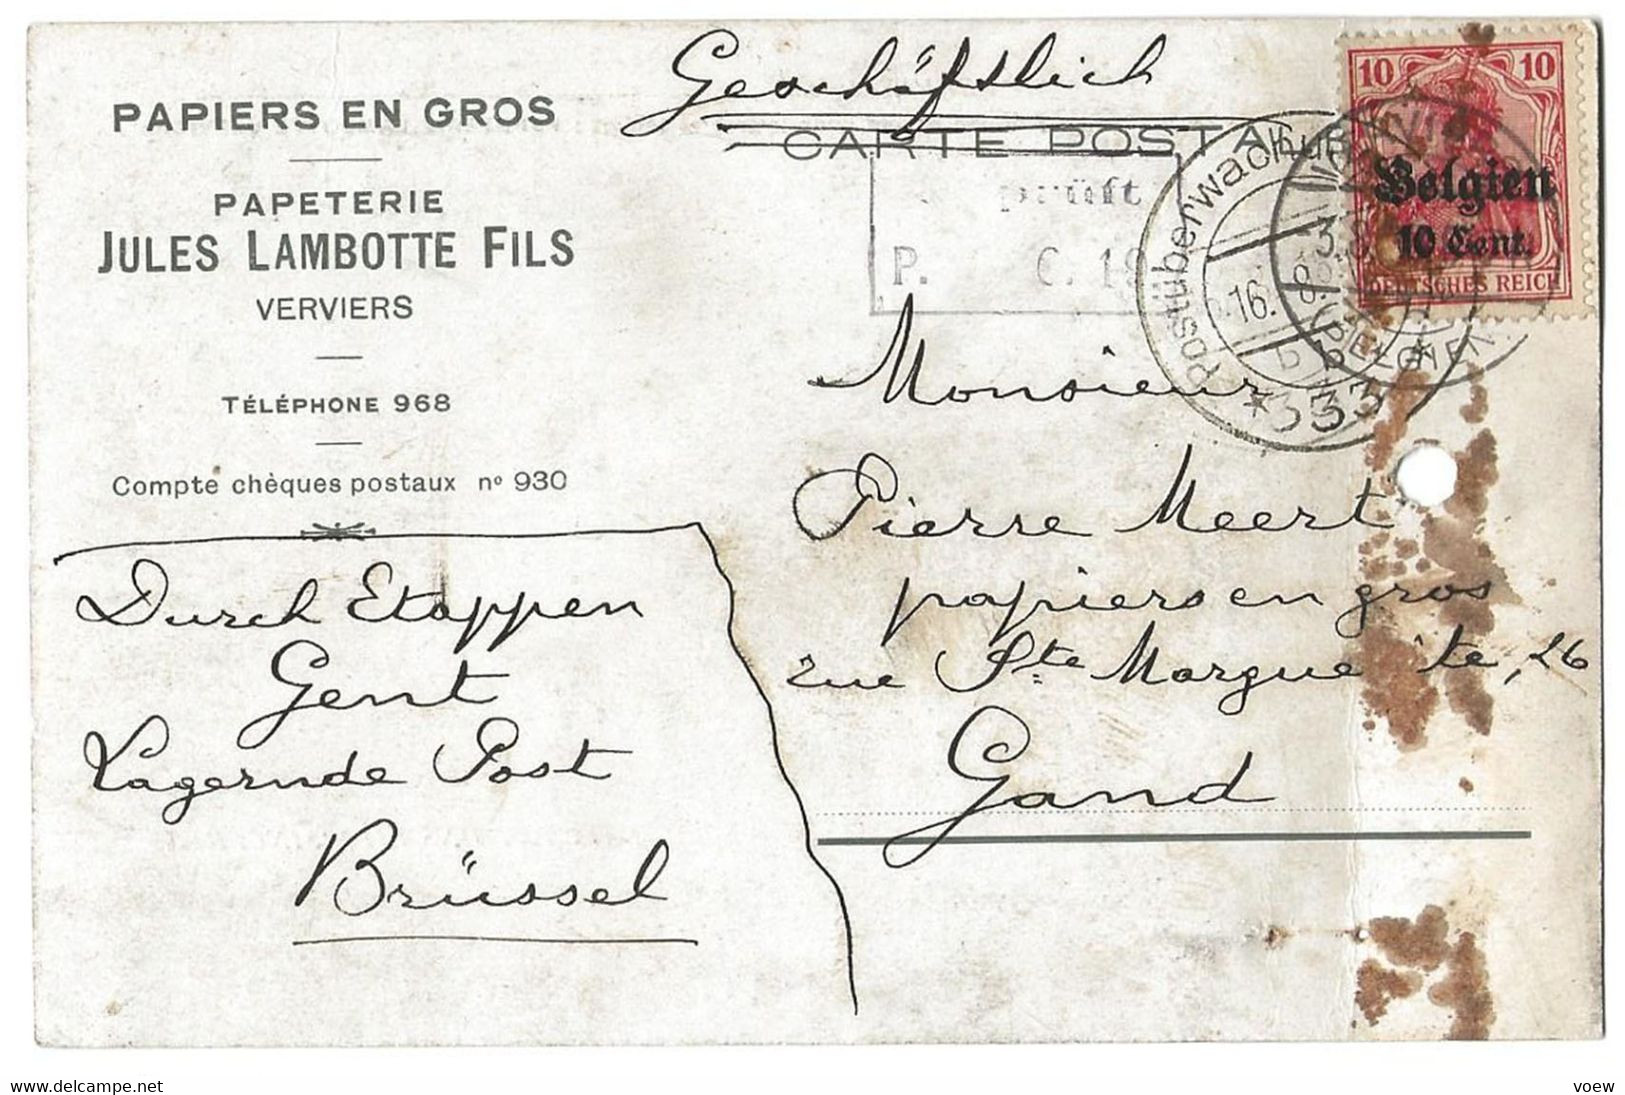 PAPIERS EN GROS
PAPETERIE
JULES LAMBOTTE FILS
VERVIERS
TÉLÉPHONE 968
Compte chèques postaux nº 930
Geschäftlich
CARTE POSTALE
prüft
P. C. 19
Postüberwachung
16. 8.
b b
* 333
BELGIEN
10 10
Belgien
10 Cent.
DEUTSCHES REICH
Monsieur
Pierre Meert
papiers en gros
rue Ste Margue ite, 26
Gand
Durch Etappen
Gent
Lagernde Post
Brüssel
www.delcampe.net
voew